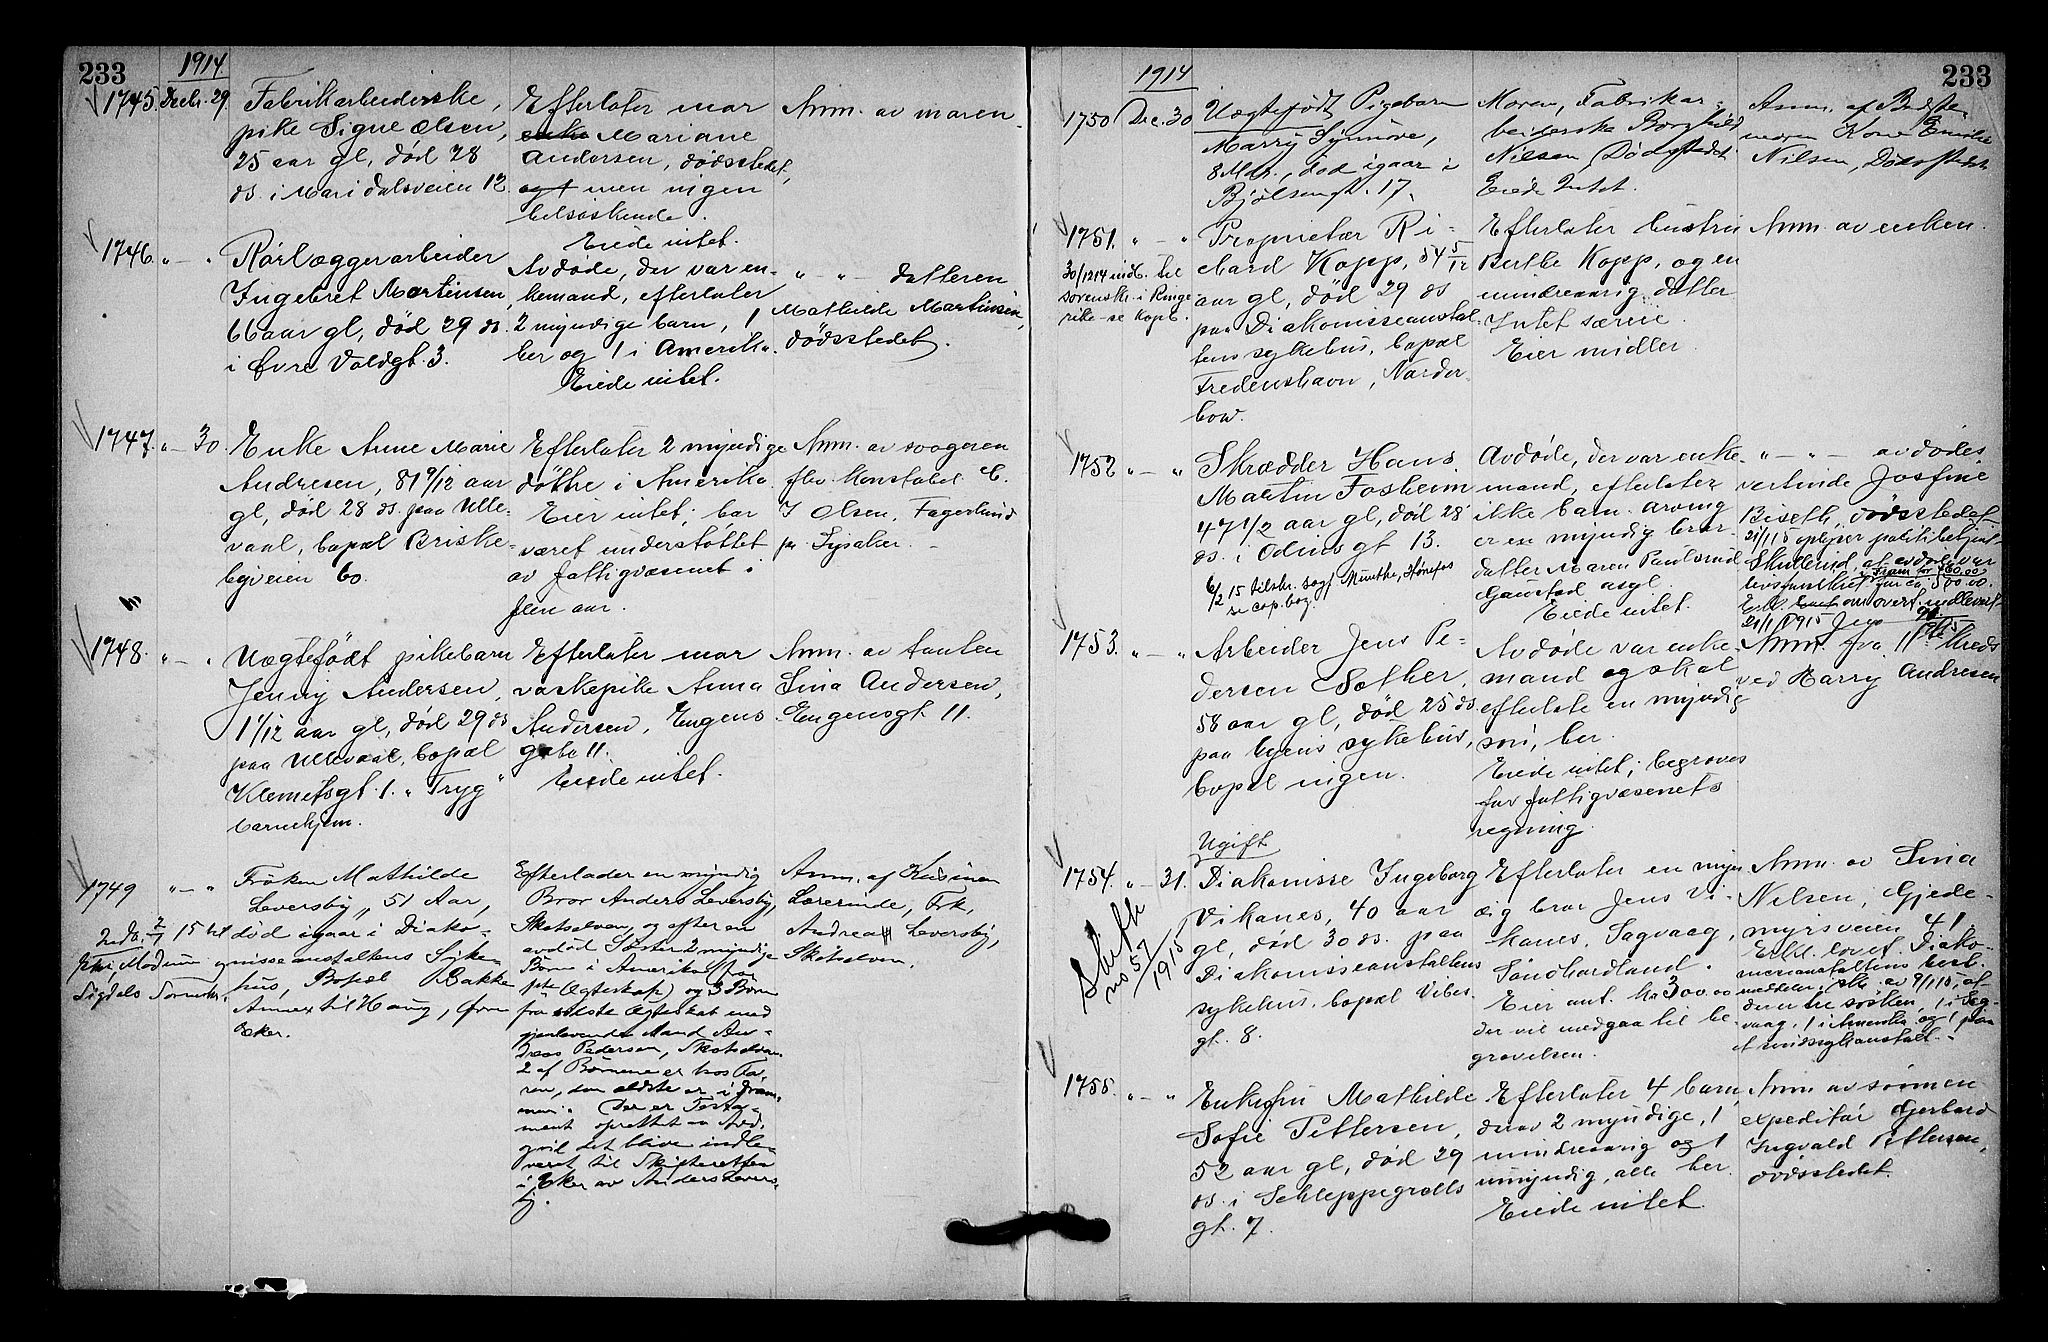 233
1914.
1745. Decbr. 29.
Fabrikarbeiderske,
pike Signe Olsen,
25 aar gl, död 28
ds. i Maridalsveien 12.
Efterlater mor
enke Mariane
Andersen, dödsstedet,
og f men ingen
helsöskende.
Eiede intet.
Anm. av moren
1746. " — "
Rörlæggerarbeider
Ingebret Martinsen,
66 aar gl, död 29 ds.
i Övre Voldgt. 3.
Avdöde, der var en-
kemand, efterlater
2 myndige barn, 1
her og 1 i Amerika.
Eiede intet.
" — " datteren
Mathilde Martinsen,
dödsstedet.
1747. " — 30.
Enke Anne Marie
Andresen, 81 9/12 aar
gl, död 28 ds. paa Ulle-
vaal, bopæl Briske-
byveien 60.
Efterlater 2 myndige
döttre i Amerika.
Eier intet; har
været understöttet
av fattigvæsenet i
flere aar.
Anm. av svogeren
fhv. Konstabel C.
J Olsen, Fagerlund
pr. Lysaker.
1748. " — "
Uægtefödt pikebarn
Jenny Andersen,
1 1/12 aar gl, död 29 ds
paa Ullevaal, bopæl
Klemetsgt. 1. "Tryg"
barnehjem.
Efterlater mor
vaskepike Anna
Andersen, Eugens
gate 11.
Eiede intet.
Anm. av tanten
Lina Andersen,
Eugensgt. 11.
1749 " — "
Indb. 2/1 15 til
Modum og
Sigdals Sorenskr.
Fröken Mathilde
Leversby, 51 Aar,
död igaar i Diako-
nisseanstaltens Syke-
hus, Bopæl Bakke
Annex til Haug, Övre
Eker.
Efterlader en myndig
Bror Anders Leversby,
Skotselven, og efter en
avdöd Söster 2 myndige
Börn i Amerika (for
Ægteskap) og 3 Börn
fra sidste Ægteskab med
gjenlevende Mand An-
dreas Pedersen, Skotselven.
2 af Börnene er hos Fa-
ren, den ældste er i Dram-
men. Der er Testa-
ment oprettet
vil det blive indle-
veret til Skifteretten
i Eker av Anders Levers-
by.
Anm. af Kusinen
Lærerinde, Frk.
Andrea Leversby,
Skotselven.
233
1914
1750 Dec. 30
Uægtefödt Pigebarn
Marry Synnöve,
8 Mdr., död igaar i
Bjölsengt. 17.
Moren, Fabrikar-
beiderske Borghild
Nilsen, Dödsstedet.
Eiede Intet.
Anm. af Bedste-
moren Kone Emilie
Nilsen, Dödsstedet
1751. " — "
30/12 14 indb. til
sorenskr. i Ringe-
rike – se Kopb.
Proprietær Ri-
chard Kopp, 54 5/12
aar gl, död 29 ds
paa Diakonisseanstal-
tens sykehus, bopæl
Fredenshavn, Norder-
hov.
Efterlater hustru
Berthe Kopp, og en
mindreaarig datter
Intet særeie.
Eier midler.
Anm. av enken.
1752 " — "
Skrædder Hans
Martin Fosheim
47 1/2 aar gl, död 28
ds. i Odins gt 13.
6/2 15 tilskr. sagf. Minthe, Hönefos
se cop. bog.
Avdöde, der var enke-
mand, efterlater
ikke barn. arving
er en myndig bror-
datter Maren Paulsrud
Gaustad asyl.
Eiede intet.
" — " — avdödes
vertinde Josfine
Biseth, dödsstedet
21/1 15 oplyser politibetjent
Skullerud, at avdöde var
livsforsikret for ca. 500.00.
21/1 1915 Jens
1753. " — "
Arbeider Jens Pe-
dersen Sother,
58 aar gl, död 25 ds
paa byens sykehus,
bopæl ingen.
Avdöde var enke-
mand og skal
efterlate en myndig
sön, her.
Eiede intet; begraves
for fattigvæsenets
regning.
Anm. fra 11te kreds
ved Harry Andresen
1754. " — 31.
Skifte
no 57/1915
Ugift
Diakonisse Ingeborg
Vikanes, 40 aar
gl, död 30 ds. paa
Diakonisseanstaltens
sykehus, bopæl Vibes
gt. 8.
Efterlater en myn
dig bror Jens Vi-
kanes, Sagvaag,
Söndhordland.
Eier ant. kr 300.00
der vil medgaa til be-
gravelsen.
Anm. av Lina
Nilsen, Gjede-
myrsveien 41
Diako-
nisseanstaltens best.
meddeler i skr. av 9/1 15, at
der er tre sösken, 1 i Sag-
vaag, 1 i Amerika og 1 paa
et sindssykeanstalt.
1755. " — "
Enkefru Mathilde
Sofie Pettersen,
52 aar gl, död 29
ds. i Schleppegrells
gt. 7.
Efterlater 4 barn,
derav 2 myndige, 1
mindreaarig og 1
umyndig, alle her.
Eiede intet.
Anm av sönnen
expeditör Gerhard
Ingvald Pettersen,
dödsstedet.